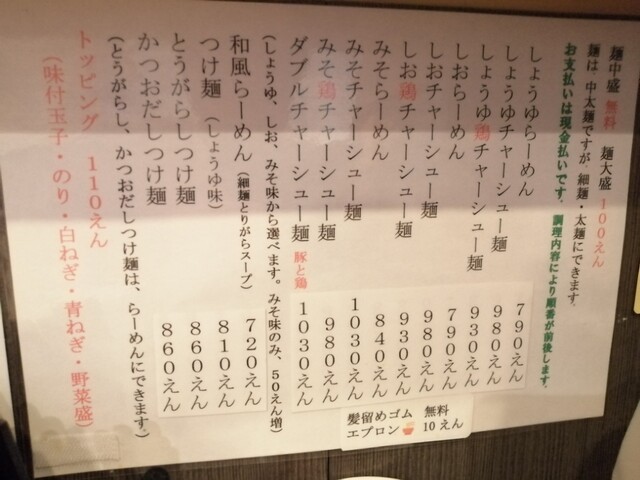 麺中盛 無料 麺大盛 100えん
麺は、中太麺ですが 細麺・太麺にできます。
お支払いは現金払いです。調理内容により順番が前後します。
しょうゆらーめん 790えん
しょうゆチャーシュー麺 980えん
しょうゆ鶏チャーシュー麺 930えん
しおらーめん 790えん
しおチャーシュー麺 980えん
しお鶏チャーシュー麺 930えん
みそらーめん 840えん
みそチャーシュー麺 1030えん
みそ鶏チャーシュー麺 980えん
ダブルチャーシュー麺 豚と鶏 1030えん
(しょうゆ、しお、みそ味から選べます。みそ味のみ、50えん増)
和風らーめん (細麺とりがらスープ) 720えん
つけ麺 (しょうゆ味) 810えん
とうがらしつけ麺 860えん
かつおだしつけ麺 860えん
(とうがらし、かつおだしつけ麺は、らーめんにできます。)
トッピング 110えん
(味付玉子・のり・白ねぎ・青ねぎ・野菜盛)
髪留めゴム 無料
エプロン 10えん